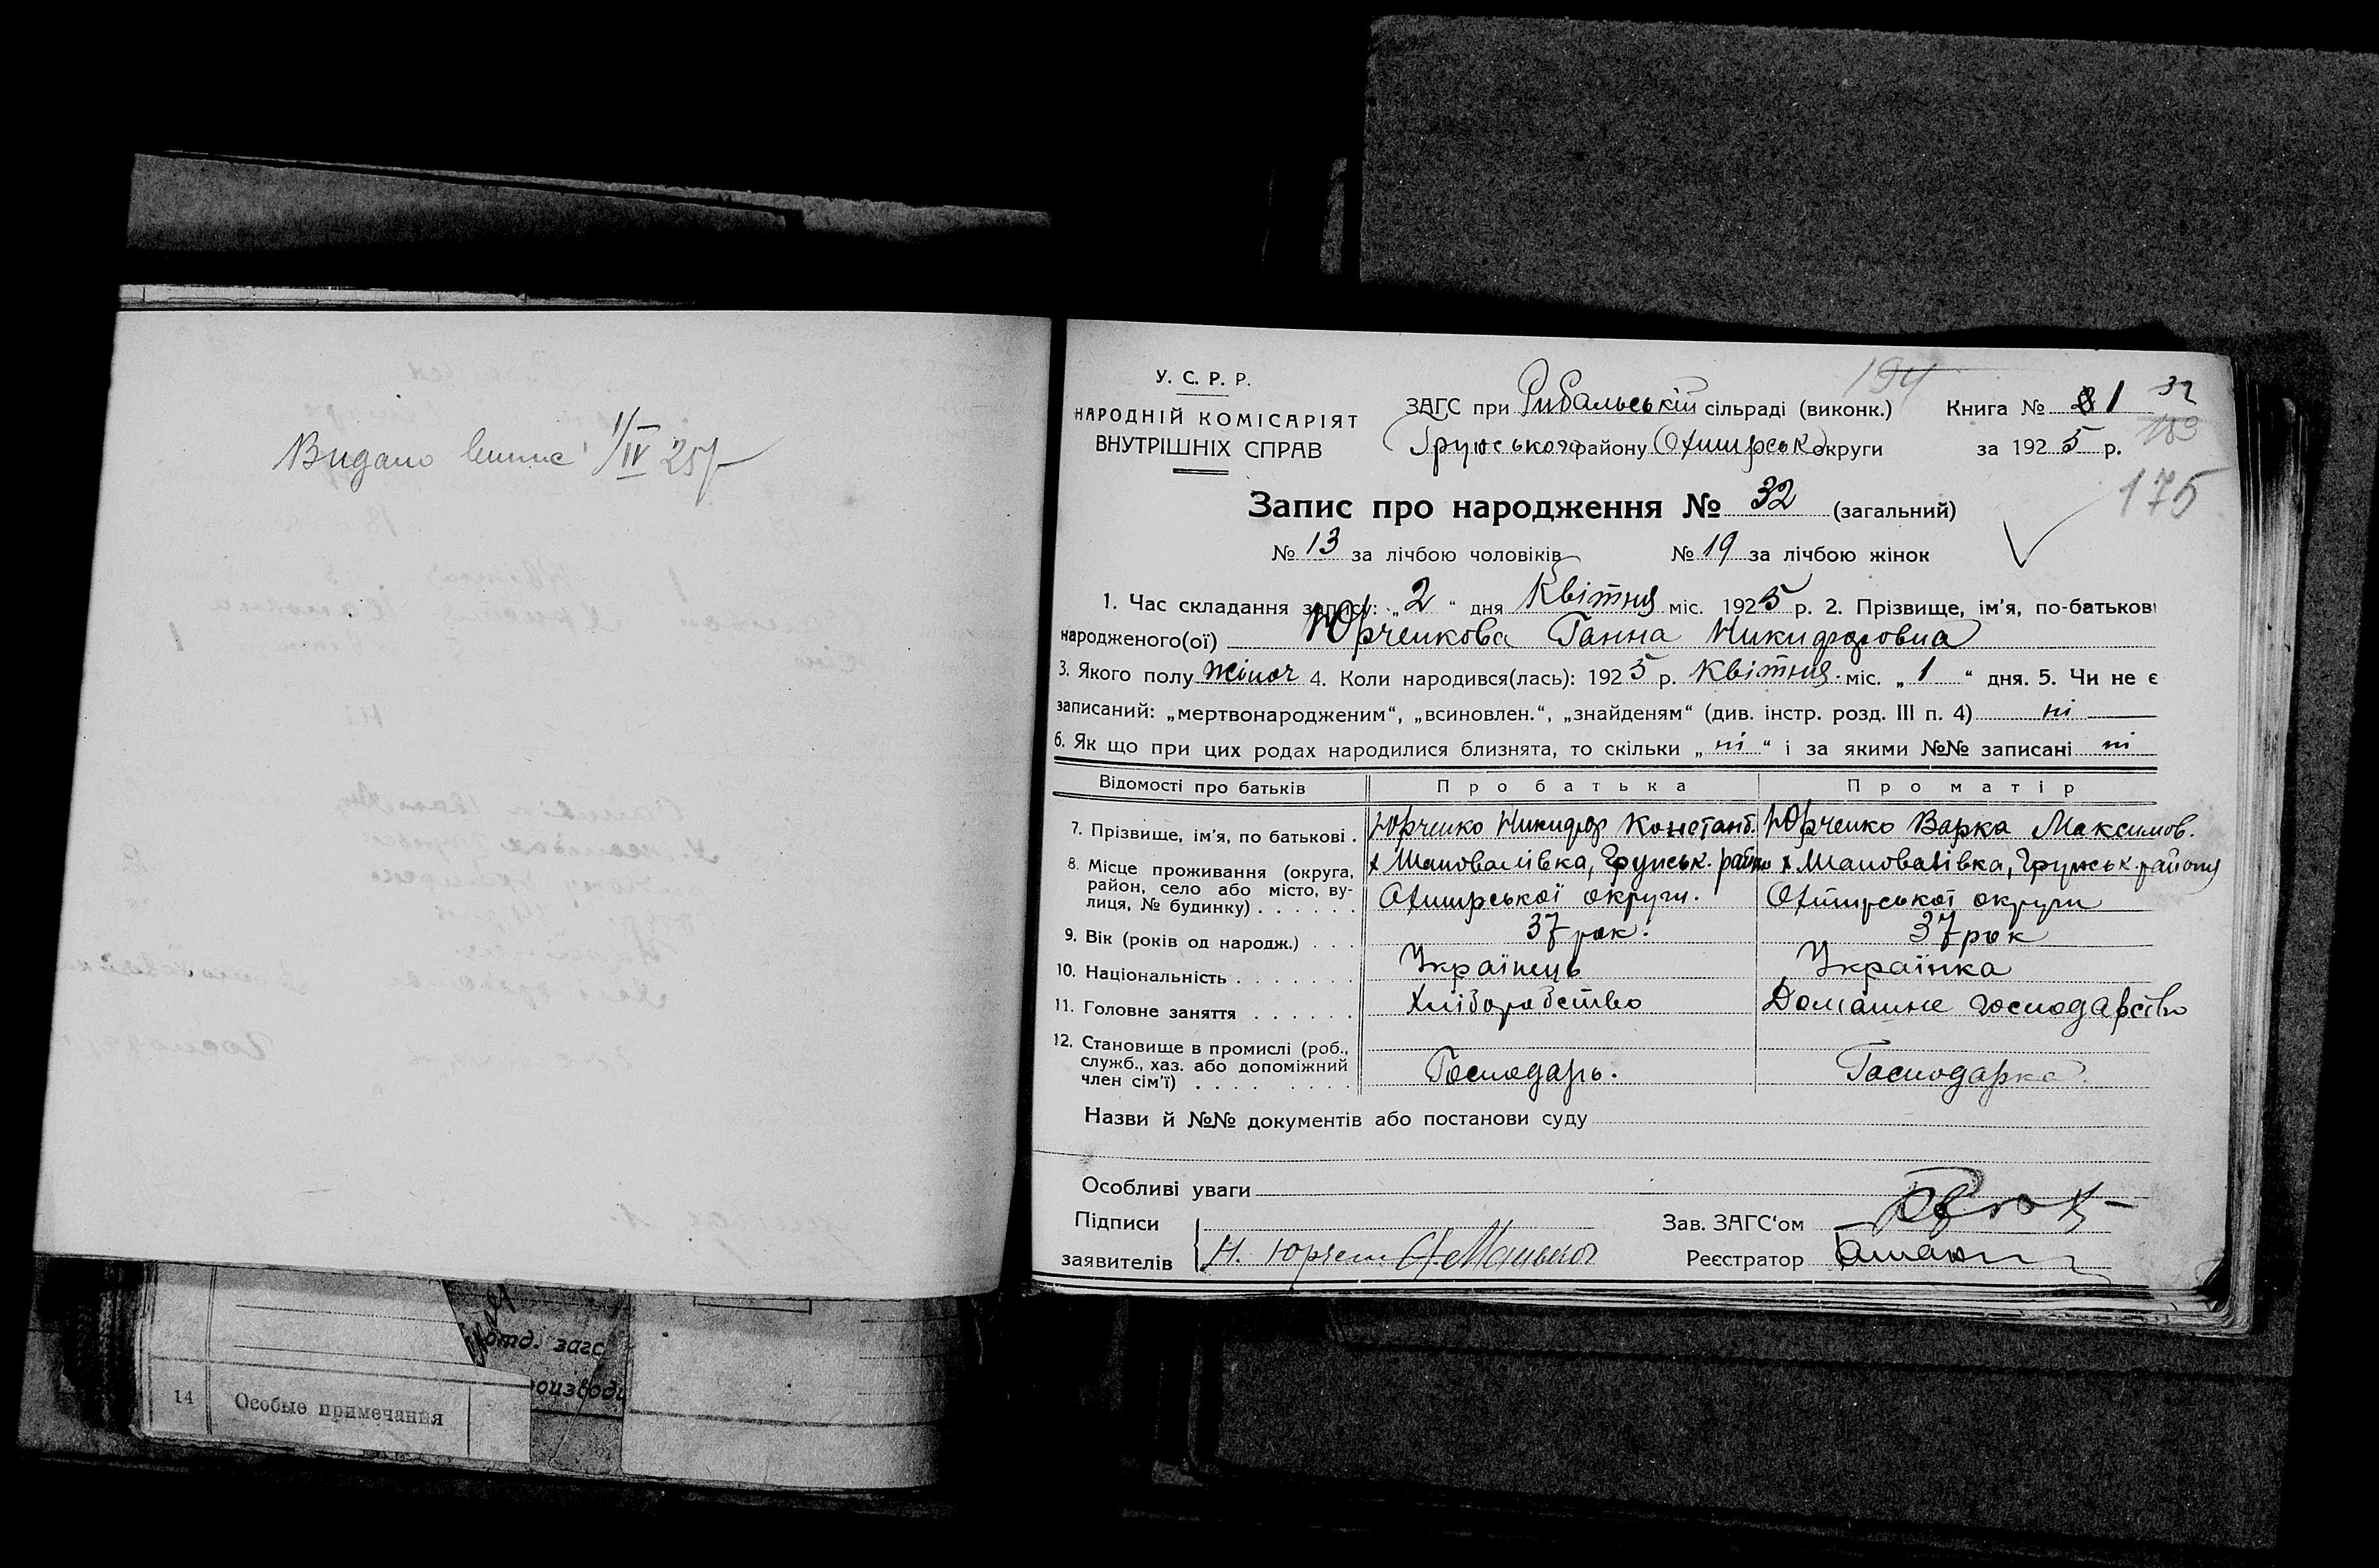 Видано виппс 1/IV 25 р
отд. загс
14 Особые примечания
194
У. С. Р. Р.
НАРОДНІЙ КОМІСАРІЯТ
ВНУТРІШНІХ СПРАВ
ЗАГС при Рибальській сільраді (виконк.) Книга № 1 32
Грунської району Охтирськ округи за 1925 р. 183
175
Запис про народження № 32 (загальний)
№ 13 за лічбою чоловіків № 19 за лічбою жінок
1. Час складання запису: „2“ дня Квітня міс. 1925 р. 2. Прізвище, ім'я, по-батькові
народженого(ої) Юрченкова Ганна Никифоровна
3. Якого полу жіноч 4. Коли народився(лась): 1925 р. Квітня міс. „1“ дня. 5. Чи не є
записаний: „мертвонародженим“, „всиновлен.“, „знайденям“ (див. інстр. розд. III п. 4) ні
6. Як що при цих родах народилися близнята, то скільки „ні“ і за якими №№ записані ні
Відомості про батьків Про батька Про матір
7. Прізвище, ім'я, по батькові . Юрченко Никифор Констант. Юрченко Варка Максимов.
8. Місце проживання (округа, район, село або місто, вулиця, № будинку) . . . . . .
х Шаповалівка, Грунськ. району х Шаповалівка, Грунськ. району
Охтирської округи. Охтирської округи
9. Вік (років од народж.) . . . 37 рок. 37 рок
10. Національність . . . . . . . Українець Українка
11. Головне заняття . . . . . . Хліборобство Домашне господарство
12. Становище в промислі (роб.,
служб., хаз. або допоміжний
член сім'ї) . . . . . . . . . Господарь. Господарка.
Назви й №№ документів або постанови суду
Особливі уваги
Підписи Зав. ЗАГС'ом
заявителів Н. Юрчен Реєстратор